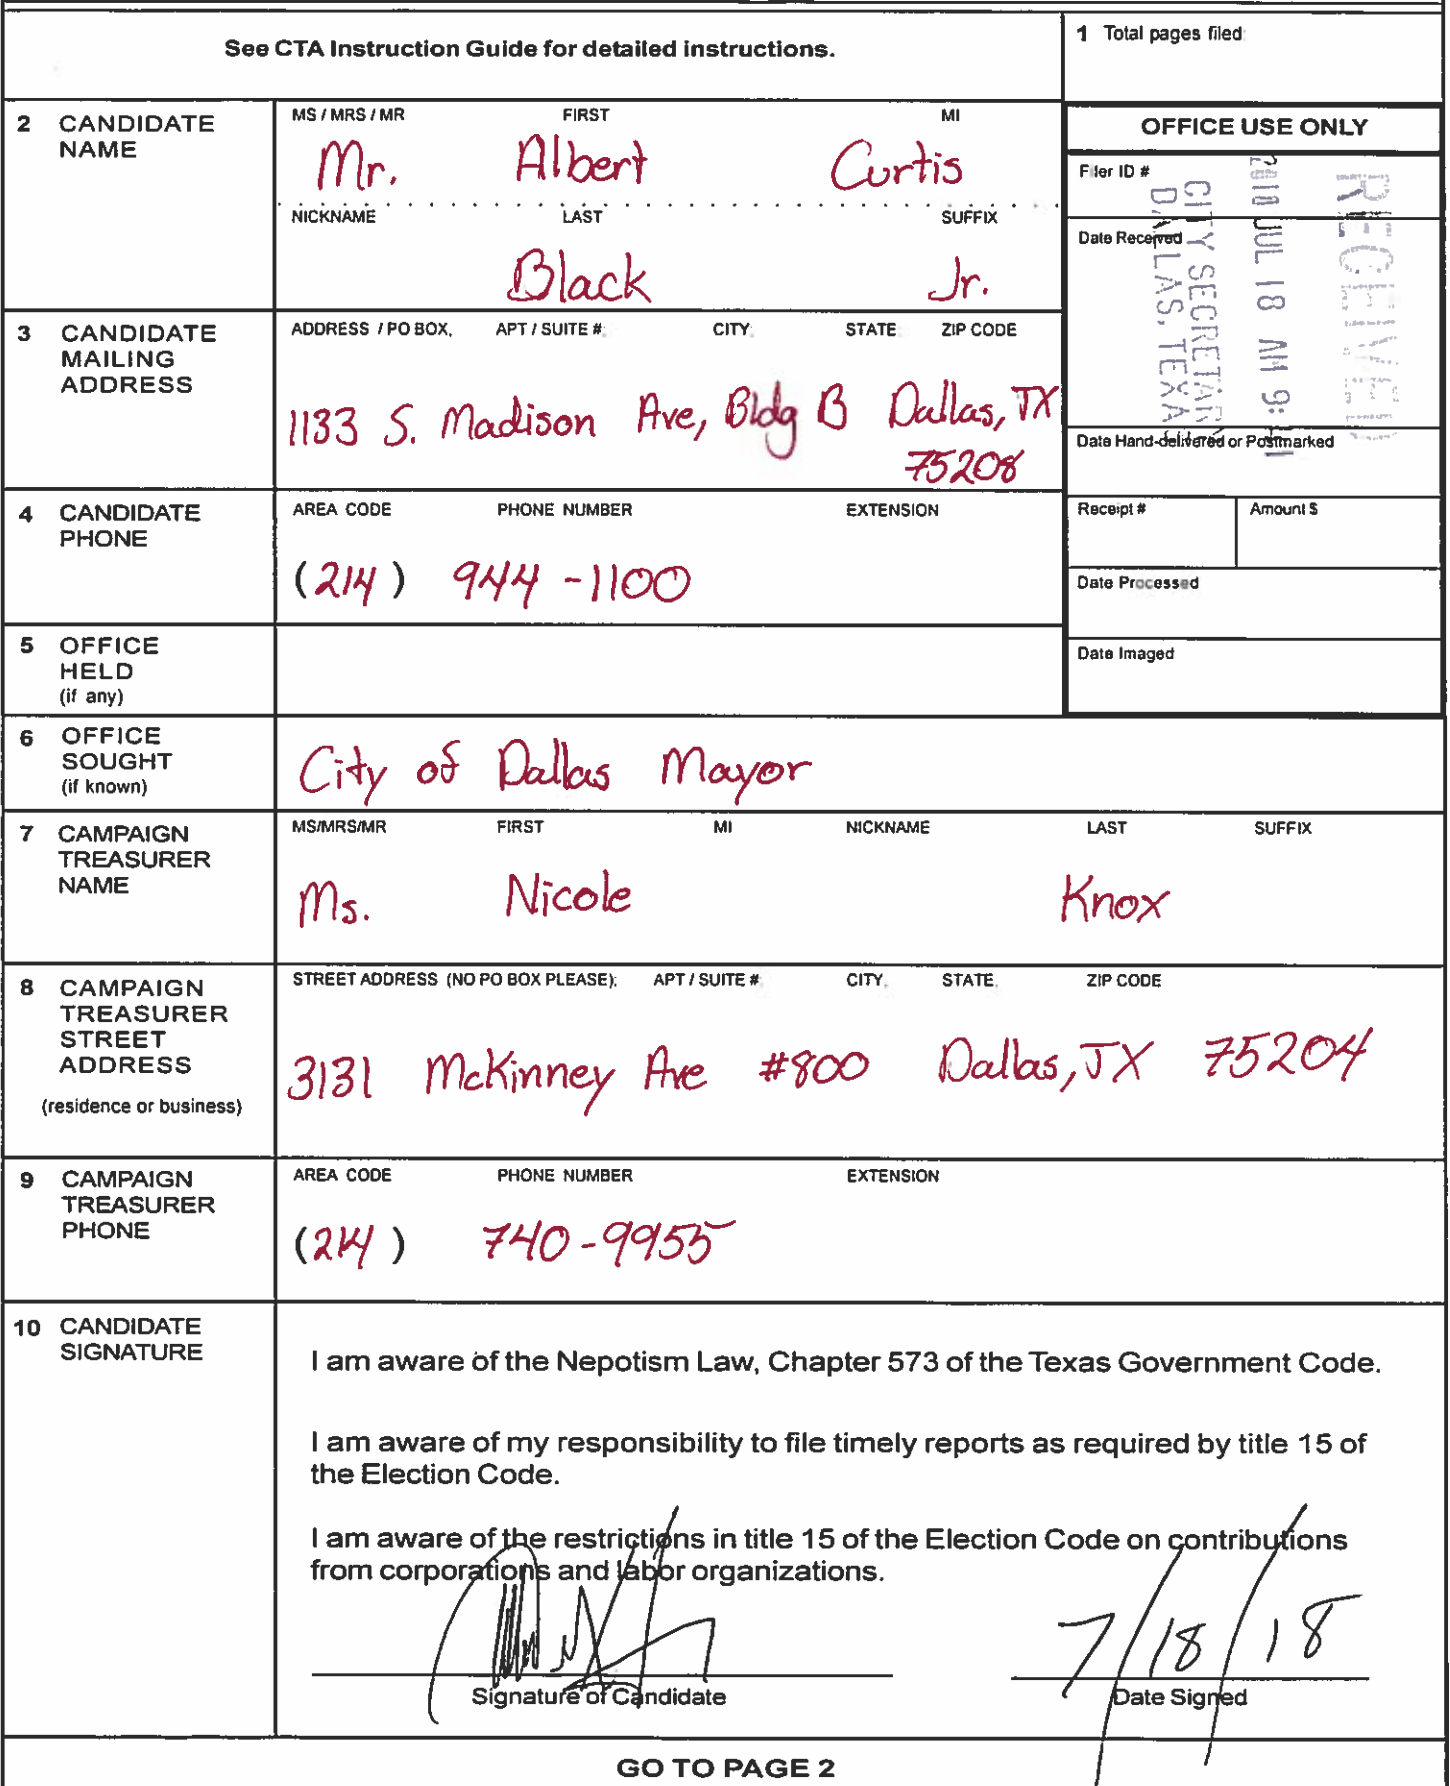 See CTA Instruction Guide for detailed instructions.
1 Total pages filed
2 CANDIDATE NAME
MS / MRS / MR FIRST MI
Mr. Albert Curtis
NICKNAME LAST SUFFIX
Black Jr.
OFFICE USE ONLY
Filer ID #
Date Received
RECEIVED
JUL 18 AM 9:
CITY SECRETARY
DALLAS, TEXAS
Date Hand-delivered or Postmarked
Receipt # Amount $
Date Processed
Date Imaged
3 CANDIDATE MAILING ADDRESS
ADDRESS / PO BOX, APT / SUITE #: CITY: STATE ZIP CODE
1133 S. Madison Ave, Bldg B Dallas, TX
75208
4 CANDIDATE PHONE
AREA CODE PHONE NUMBER EXTENSION
(214) 944-1100
5 OFFICE HELD
(if any)
6 OFFICE SOUGHT
(if known)
City of Dallas Mayor
7 CAMPAIGN TREASURER NAME
MS/MRS/MR FIRST MI NICKNAME LAST SUFFIX
Ms. Nicole Knox
8 CAMPAIGN TREASURER STREET ADDRESS
(residence or business)
STREET ADDRESS (NO PO BOX PLEASE); APT / SUITE # CITY, STATE, ZIP CODE
3131 McKinney Ave #800 Dallas, TX 75204
9 CAMPAIGN TREASURER PHONE
AREA CODE PHONE NUMBER EXTENSION
(214) 740-9955
10 CANDIDATE SIGNATURE
I am aware of the Nepotism Law, Chapter 573 of the Texas Government Code.
I am aware of my responsibility to file timely reports as required by title 15 of
the Election Code.
I am aware of the restrictions in title 15 of the Election Code on contributions
from corporations and labor organizations.
7/18/18
Signature of Candidate Date Signed
GO TO PAGE 2